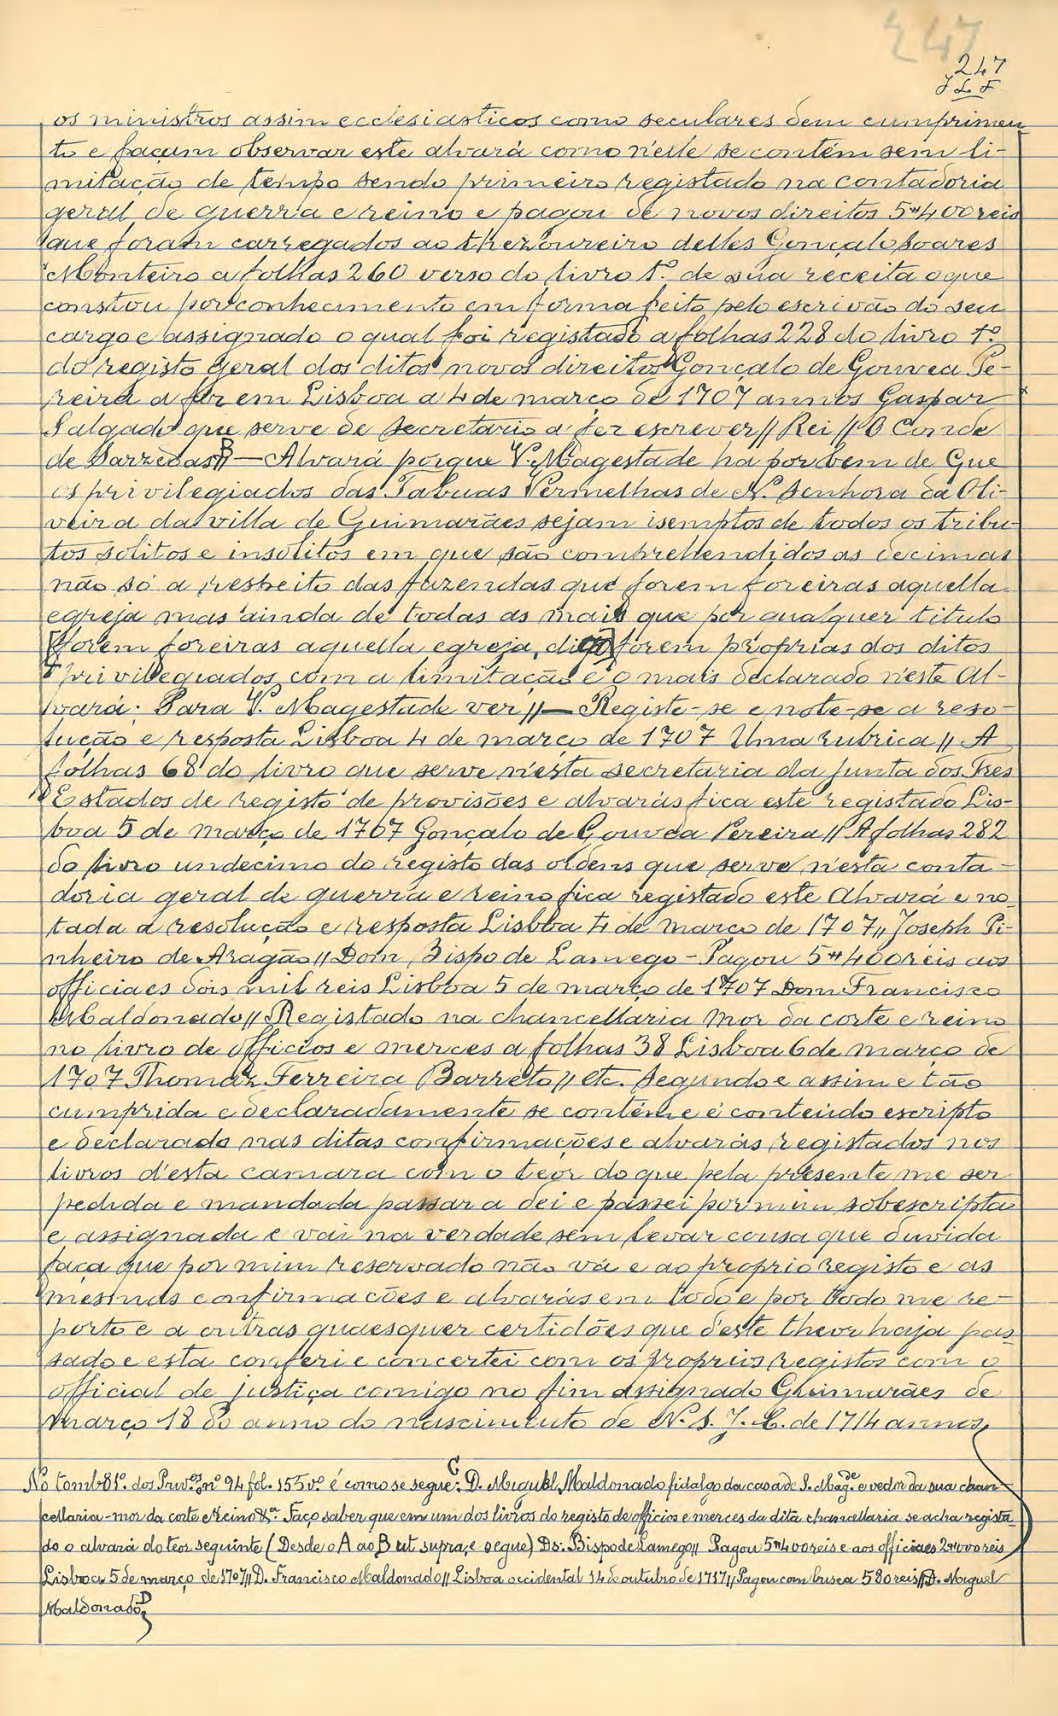 247
247
J L F
os ministros assim ecclesiasticos como seculares dem cumprimen-
to e façam observar este alvará como n'elle se contém sem li-
mitação de tempo sendo primeiro registado na contadoria
geral de guerra e reino e pagou de novos direitos 5#400 reis
que foram carregados ao thezoureiro delles Gonçalo Soares
Monteiro a folhas 260 verso do livro 1º de sua receita o que
constou por conhecimento em forma feito pelo escrivão do seu
cargo e assignado o qual foi registado a folhas 228 do livro 1º
do registo geral dos ditos novos direitos Gonçalo de Gouvea Pe-
reira a fez em Lisboa a 4 de março de 1707 annos Gaspar
Salgado que serve de secretario a fez escrever // Rei // O Conde
de Sarzedas B // — Alvará porque V. Magestade ha por bem de que
os privilegiados das Tabuas Vermelhas de N. Senhora da Oli-
veira da villa de Guimarães sejam isemptos de todos os tribu-
tos solitos e insolitos em que são comprehendidos as decimas
não só a respeito das fazendas que forem foreiras aquella
egreja mas ainda de todas as mais que por qualquer titulo
[forem foreiras aquella egreja, digo] forem proprias dos ditos
privilegiados com a limitação e o mais declarado n'este Al-
vará. Para V. Magestade ver // — Registe-se e note-se a reso-
lução e resposta Lisboa 4 de março de 1707 Uma rubrica // A
folhas 68 do livro que serve n'esta secretaria da Junta dos Tres
Estados de registo de provisões e alvarás fica este registado Lis-
boa 5 de março de 1707 Gonçalo de Gouvea Pereira // A folhas 282
do livro undecimo do registo das ordens que serve n'esta conta-
doria geral de guerra e reino fica registado este Alvará e no-
tada a resolução e resposta Lisboa 4 de março de 1707 // Joseph Pi-
nheiro de Aragão // Dom Bispo de Lamego - Pagou 5#400 reis aos
officiaes dois mil reis Lisboa 5 de março de 1707 Dom Francisco
Maldonado // Registado na chancellaria mor da corte e reino
no livro de officios e merces a folhas 38 Lisboa 6 de março de
1707 Thomaz Ferreira Barreto // etc. Segundo e assim e tão
cumprida e declaradamente se contém e é conteúdo escripto
e declarado nas ditas confirmações e alvarás registados nos
livros d'esta camara com o teor do que pela presente me ser
pedida e mandada passar a dei e passei por mim sobescripta
e assignada e vai na verdade sem levar cousa que duvida
faça que por mim reservado não vá e ao proprio registo e as
mesmas confirmações e alvarás em todo e por todo me re-
porto e a outras quaesquer certidões que d'este theor haja pas-
sado e esta conferi e concertei com os proprios registos com o
official de justiça comigo no fim assignado Guimarães de
março 18 do anno do nascimento de N. S. J. C. de 1714 annos
No tomb 81º dos Prov.os nº 94 fol. 155 vº é como se segue: C D. Miguel Maldonado fidalgo da casa de S. Mag.de e vedor da sua chan-
cellaria-mor da corte e reino &.a Faço saber que em um dos livros do registo de officios e merces da dita chancellaria se acha regista-
do o alvará do teor seguinte (Desde o A ao B ut supra, e segue) Ds: Bispo de Lamego // Pagou 5#400 reis e aos officiaes 2#000 reis
Lisboa 5 de março de 1707 // D. Francisco Maldonado // Lisboa occidental 14 de outubro de 1717 // Pagou com busca 580 reis // D. Miguel
Maldonado D